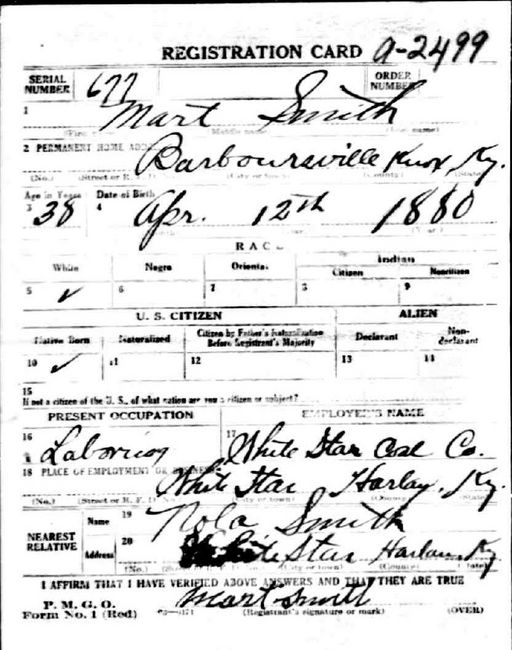 REGISTRATION CARD A-2499
SERIAL NUMBER 677 ORDER NUMBER
1 Mart Smith
Middle name
2 PERMANENT HOME ADD
Barboursville Knox Ky.
(No.) (Street or R. (City or town) (County) (State)
Age in Years Date of Birth
3 38 4 Apr. 12th 1880
RAC
White Negro Orienta Indian
Citizen Noncitizen
5 ✓ 6 7 8 9
U. S. CITIZEN ALIEN
Native Born Naturalized Citizen by Father's Naturalization Before Registrant's Majority Declarant Non-declarant
10 ✓ 11 12 13 14
15
If not a citizen of the U. S., of what nation are you a citizen or subject?
PRESENT OCCUPATION EMPLOYER'S NAME
16 Laboring 17 White Star Coal Co.
18 PLACE OF EMPLOYMENT OR BUSINESS
White Star Harlan, Ky.
(No.) (Street or R. F. (City or town) (County) (State)
NEAREST RELATIVE Name 19 Nola Smith
Address 20 White Star Harlan, Ky
(No.) (City or town) (County) (State)
I AFFIRM THAT I HAVE VERIFIED ABOVE ANSWERS AND THAT THEY ARE TRUE
P. M. G. O.
Form No. 1 (Red) Mart Smith
(Registrant's signature or mark) (OVER)